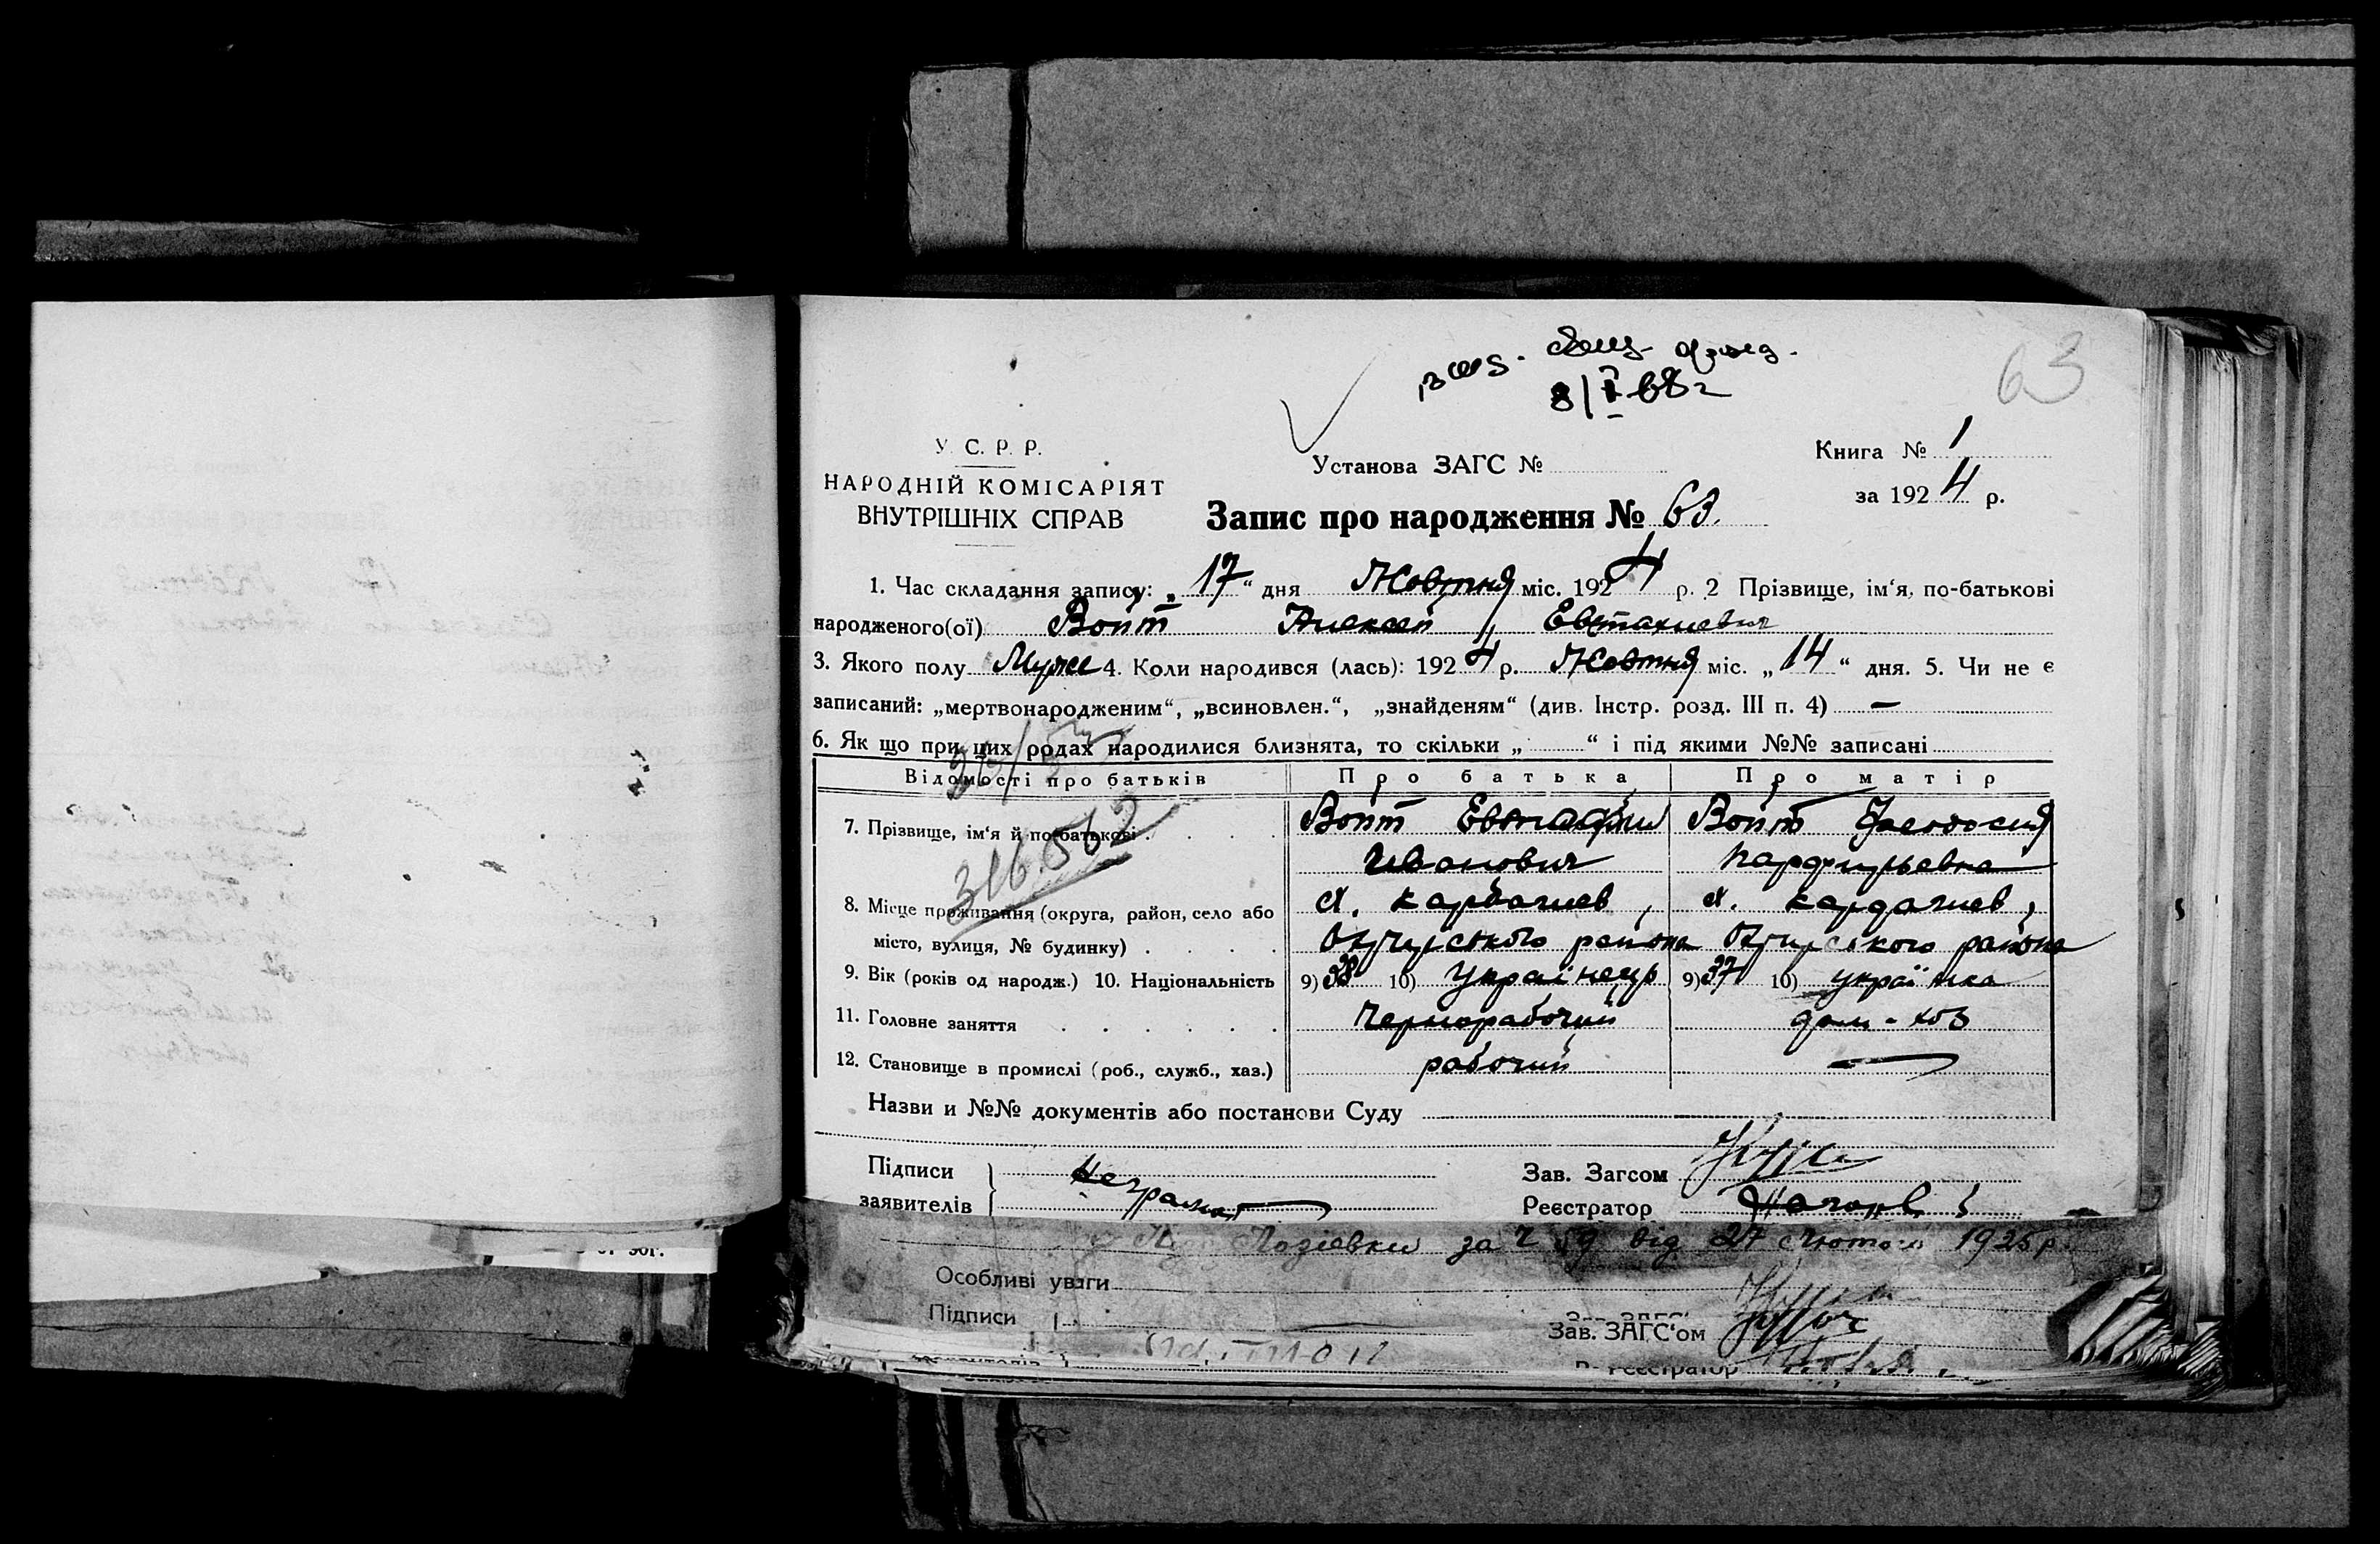 63
8/I 68г
У. С. Р. Р.
НАРОДНІЙ КОМІСАРІЯТ
ВНУТРІШНІХ СПРАВ
Установа ЗАГС №
Книга № 1
за 1924 р.
Запис про народження № 63.
1. Час складання запису: „17“ дня Жовтня міс. 1924 р. 2 Прізвище, ім‘я, по-батькові
народженого(ої) Войт Алексей Евстахиевич
3. Якого полу Мужс 4. Коли народився (лась): 1924 р. Жовтня міс. „14“ дня. 5. Чи не є
записаний: „мертвонародженим“, „всиновлен.“, „знайденям“ (див. Інстр. розд. III п. 4) —
6. Як що при цих родах народилися близнята, то скільки „ “ і під якими №№ записані
Відомості про батьків Про батька Про матір
7. Прізвище, ім‘я й по-батькові Войт Евстафий Войт Феодосия
Иванович Парфирьевна
316.562
8. Місце проживання (округа, район, село або х. Кардачиев, х. Кардачиев,
місто, вулиця, № будинку) района района
9. Вік (років од народж.) 10. Національність 9) 38 10) Українець 9) 37 10) українка
11. Головне заняття Чернорабочий дом-хоз
12. Становище в промислі (роб., служб., хаз.) рабочий —
Назви и №№ документів або постанови Суду
Підписи
заявителів
неграмот
Зав. Загсом
Реєстратор
Лозіевки за Ч 59 від 27 Лютого 1925 р.
Особливі уваги
Підписи
Зав. ЗАГС‘ом
Реєстратор